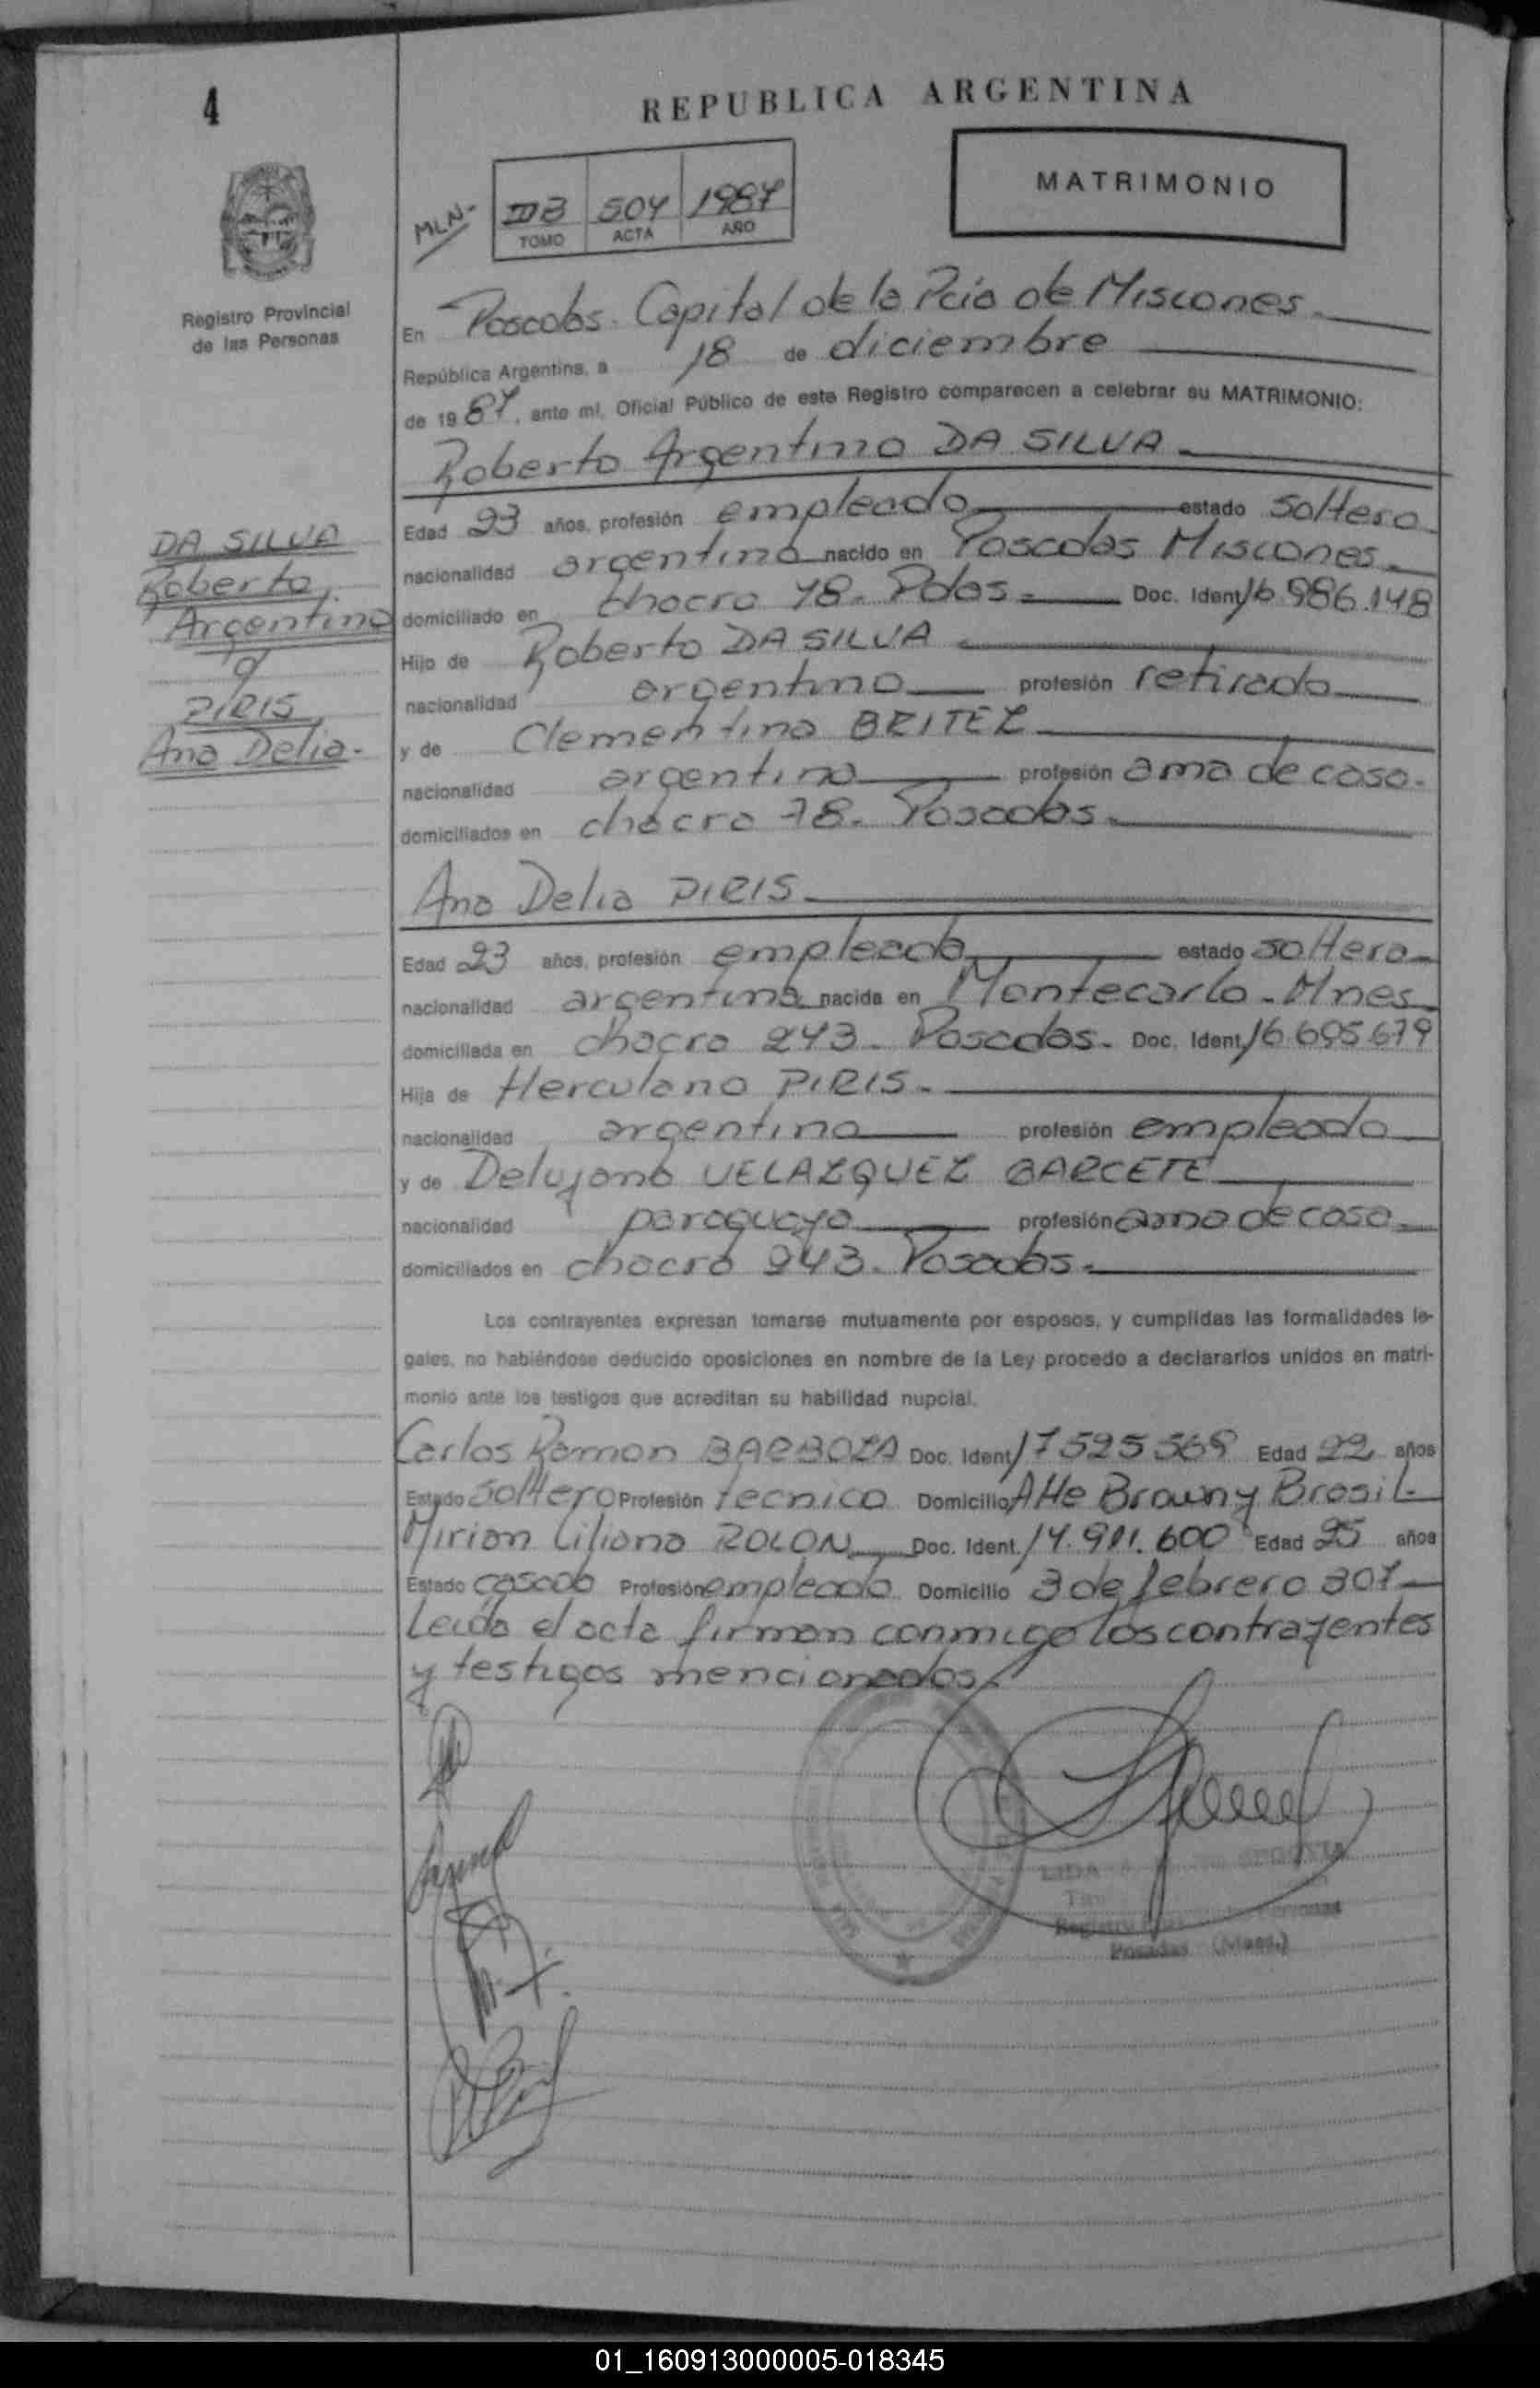 4
REPUBLICA ARGENTINA
MATRIMONIO
MLN-
II B 504 1987
TOMO ACTA AÑO
Registro Provincial
de las Personas
En Posadas. Capital de la Pcia de Misiones.
República Argentina, a 18 de diciembre
de 1987, ante mi, Oficial Público de este Registro comparecen a celebrar su MATRIMONIO:
Roberto Argentino DA SILVA
DA SILVA
Roberto
Argentino
PIRIS
Ana Delia.
Edad 23 años, profesión empleado estado soltero
nacionalidad argentina nacido en Posadas Misiones.
domiciliado en chacra 78. Pdas. Doc. Ident. 16.986.148
Hijo de Roberto DA SILVA
nacionalidad argentino profesión retirado
y de Clementina BRITEZ
nacionalidad argentina profesión ama de casa.
domiciliados en chacra 78. Posadas.
Ana Delia PIRIS
Edad 23 años, profesión empleada estado soltera
nacionalidad argentina nacida en Montecarlo. Mnes
domiciliada en chacra 243. Posadas. Doc. Ident. 16.695.679
Hija de Herculano PIRIS.
nacionalidad argentina profesión empleado
y de Delujana VELAZQUEZ GARCETE
nacionalidad paraguaya profesión ama de casa.
domiciliados en chacra 243. Posadas.
Los contrayentes expresan tomarse mutuamente por esposos, y cumplidas las formalidades le-
gales, no habiéndose deducido oposiciones en nombre de la Ley procedo a declararlos unidos en matri-
monio ante los testigos que acreditan su habilidad nupcial.
Carlos Ramon BARBOZA Doc. Ident. 17525569 Edad 22 años
Estado soltero Profesión tecnico Domicilio Alte Brown y Brasil.
Mirian Liliana ROLON Doc. Ident. 14.911.600 Edad 25 años
Estado casada Profesión empleada Domicilio 3 de febrero 307
Leida el acta firman conmigo los contrayentes
y testigos mencionados.
LIDA SEGOVIA
Registro
Posadas (Mnes.)
01_160913000005-018345